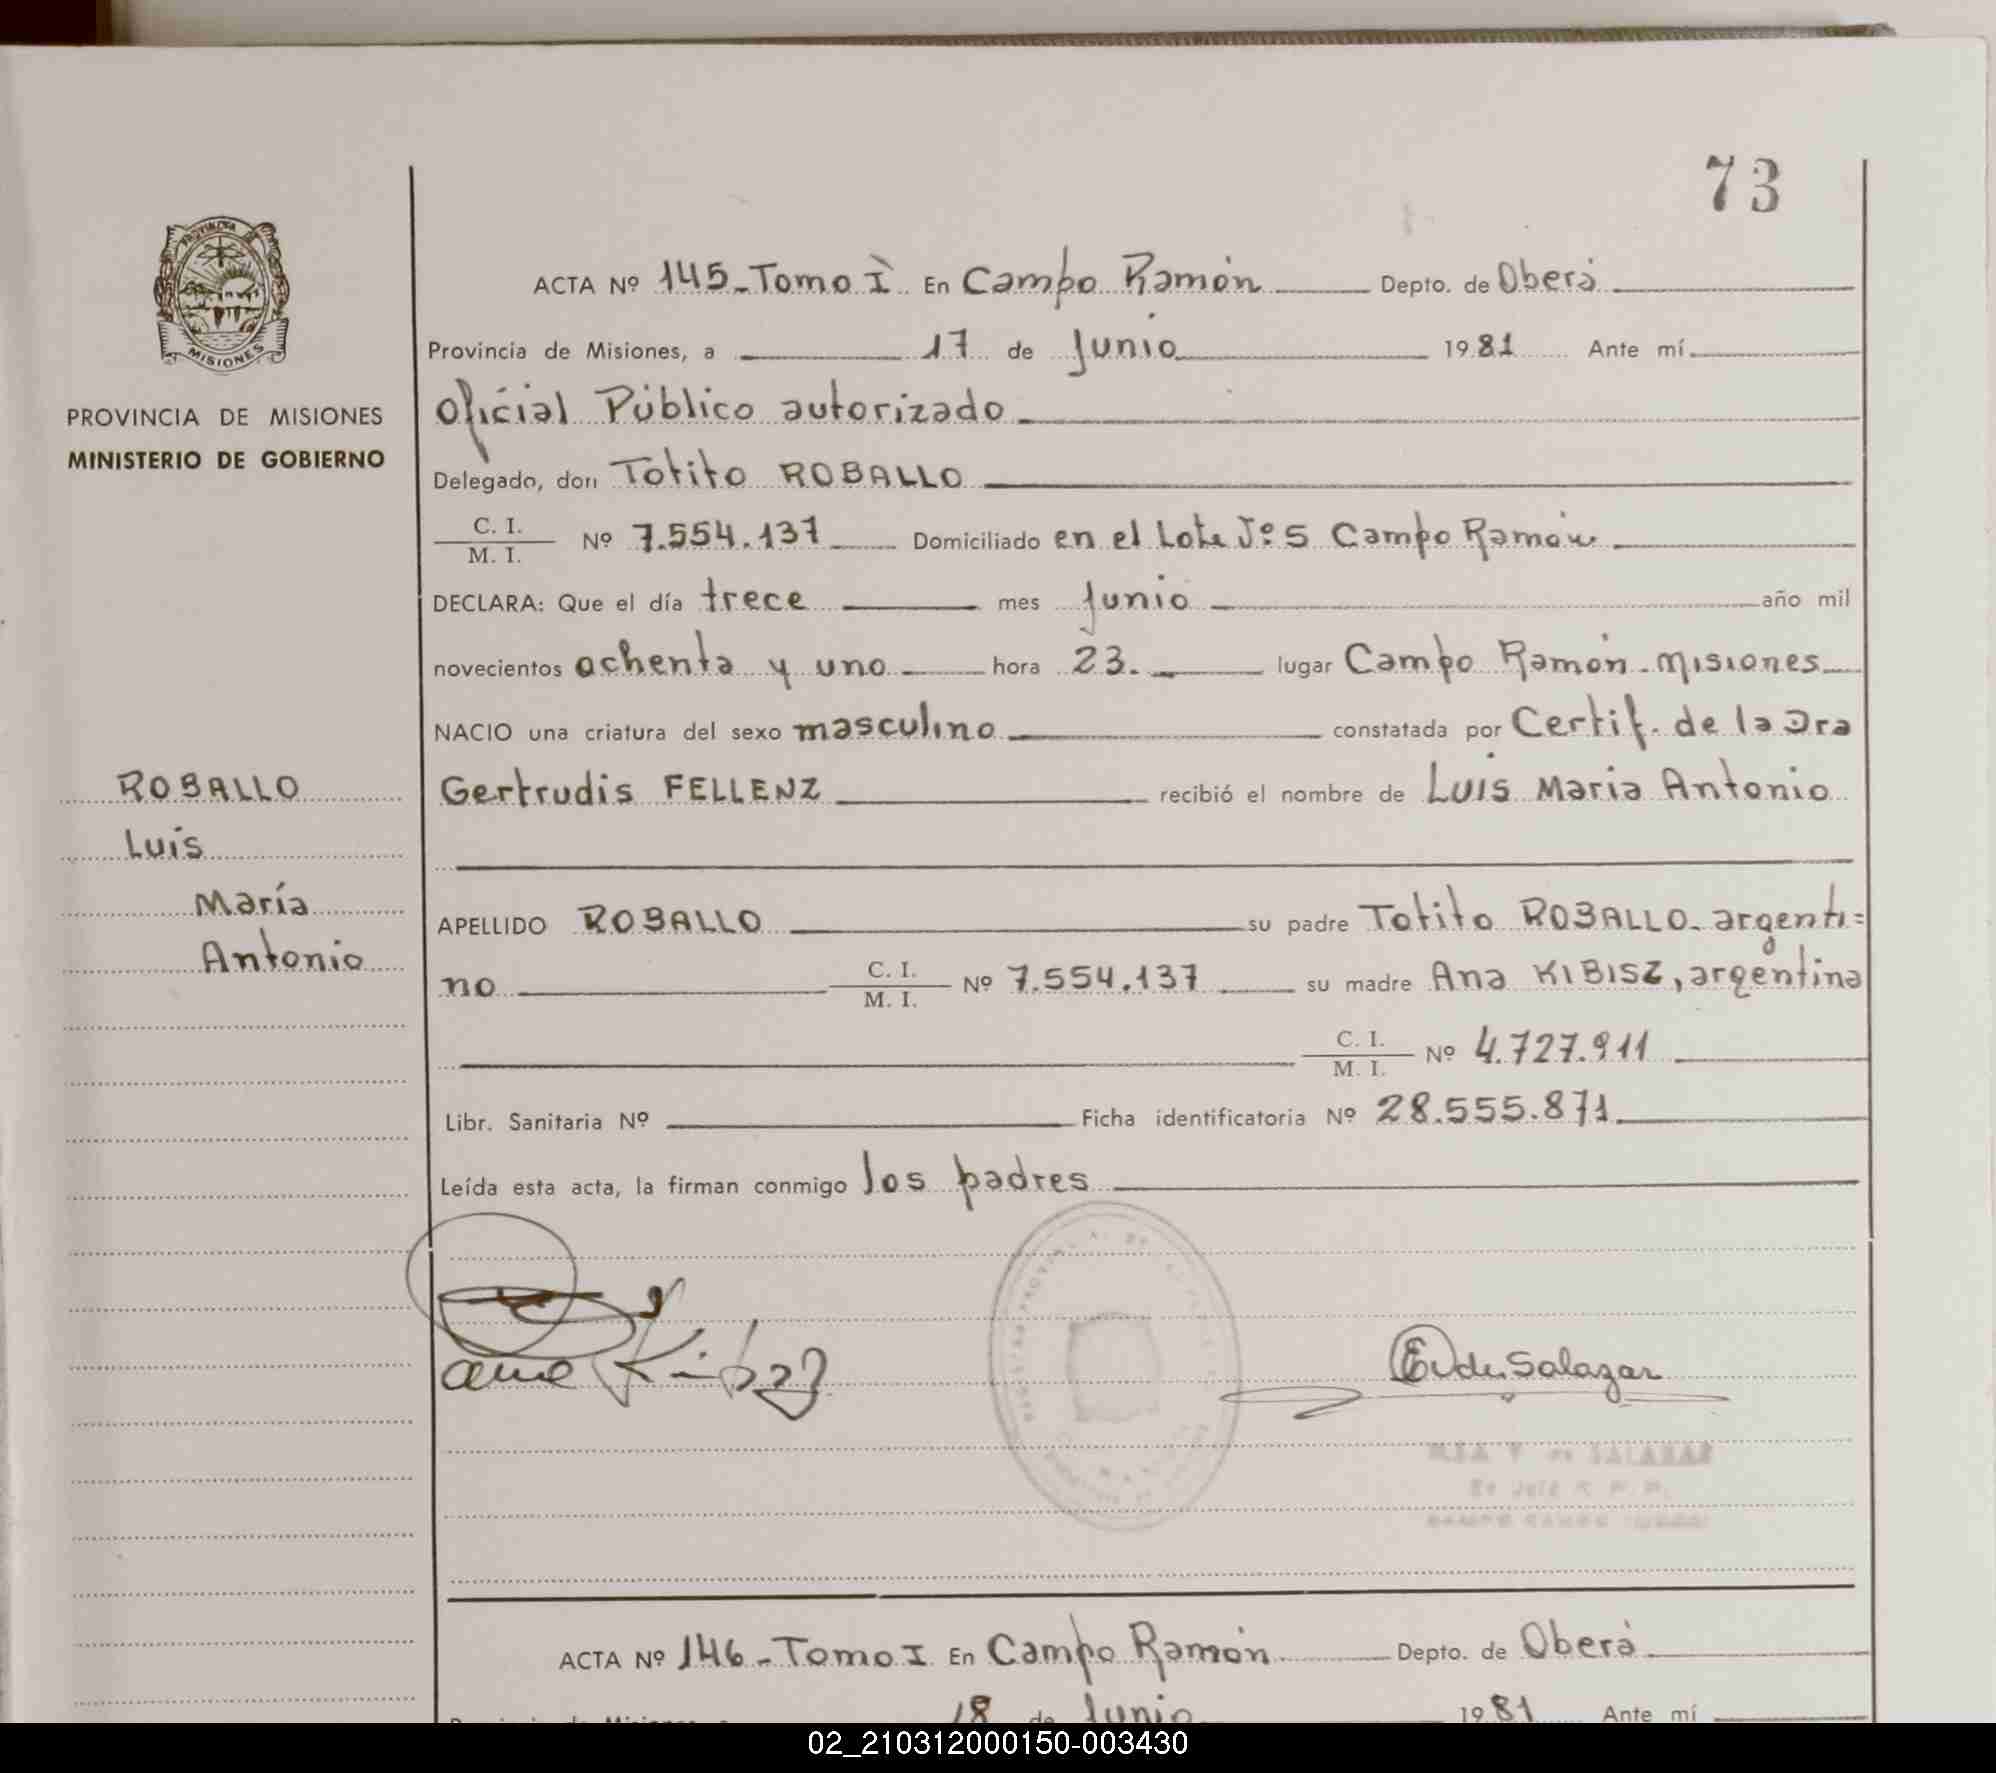 73
PROVINCIA DE
MISIONES
PROVINCIA DE MISIONES
MINISTERIO DE GOBIERNO
ROBALLO
Luis
María
Antonio
ACTA Nº 145-Tomo I En Campo Ramón Depto. de Oberá
Provincia de Misiones, a 17 de Junio 1981 Ante mí
Oficial Público autorizado
Delegado, don Totito ROBALLO
C. I.
M. I. Nº 7.554.137 Domiciliado en el Lote Jº 5 Campo Ramón
DECLARA: Que el día trece mes Junio año mil
novecientos ochenta y uno hora 23. lugar Campo Ramón-Misiones
NACIO una criatura del sexo masculino constatada por Certif. de la Dra
Gertrudis FELLENZ recibió el nombre de Luis Maria Antonio
APELLIDO ROBALLO su padre Totito ROBALLO- argenti=
no C. I.
M. I. Nº 7.554.137 su madre Ana KIBISZ, argentina
C. I.
M. I. Nº 4.727.911
Libr. Sanitaria Nº Ficha identificatoria Nº 28.555.871
Leída esta acta, la firman conmigo los padres
de Salazar
de SALAZAR
ACTA Nº 146-Tomo I En Campo Ramón Depto. de Oberá
18 de Junio 1981 Ante mí
02_210312000150-003430